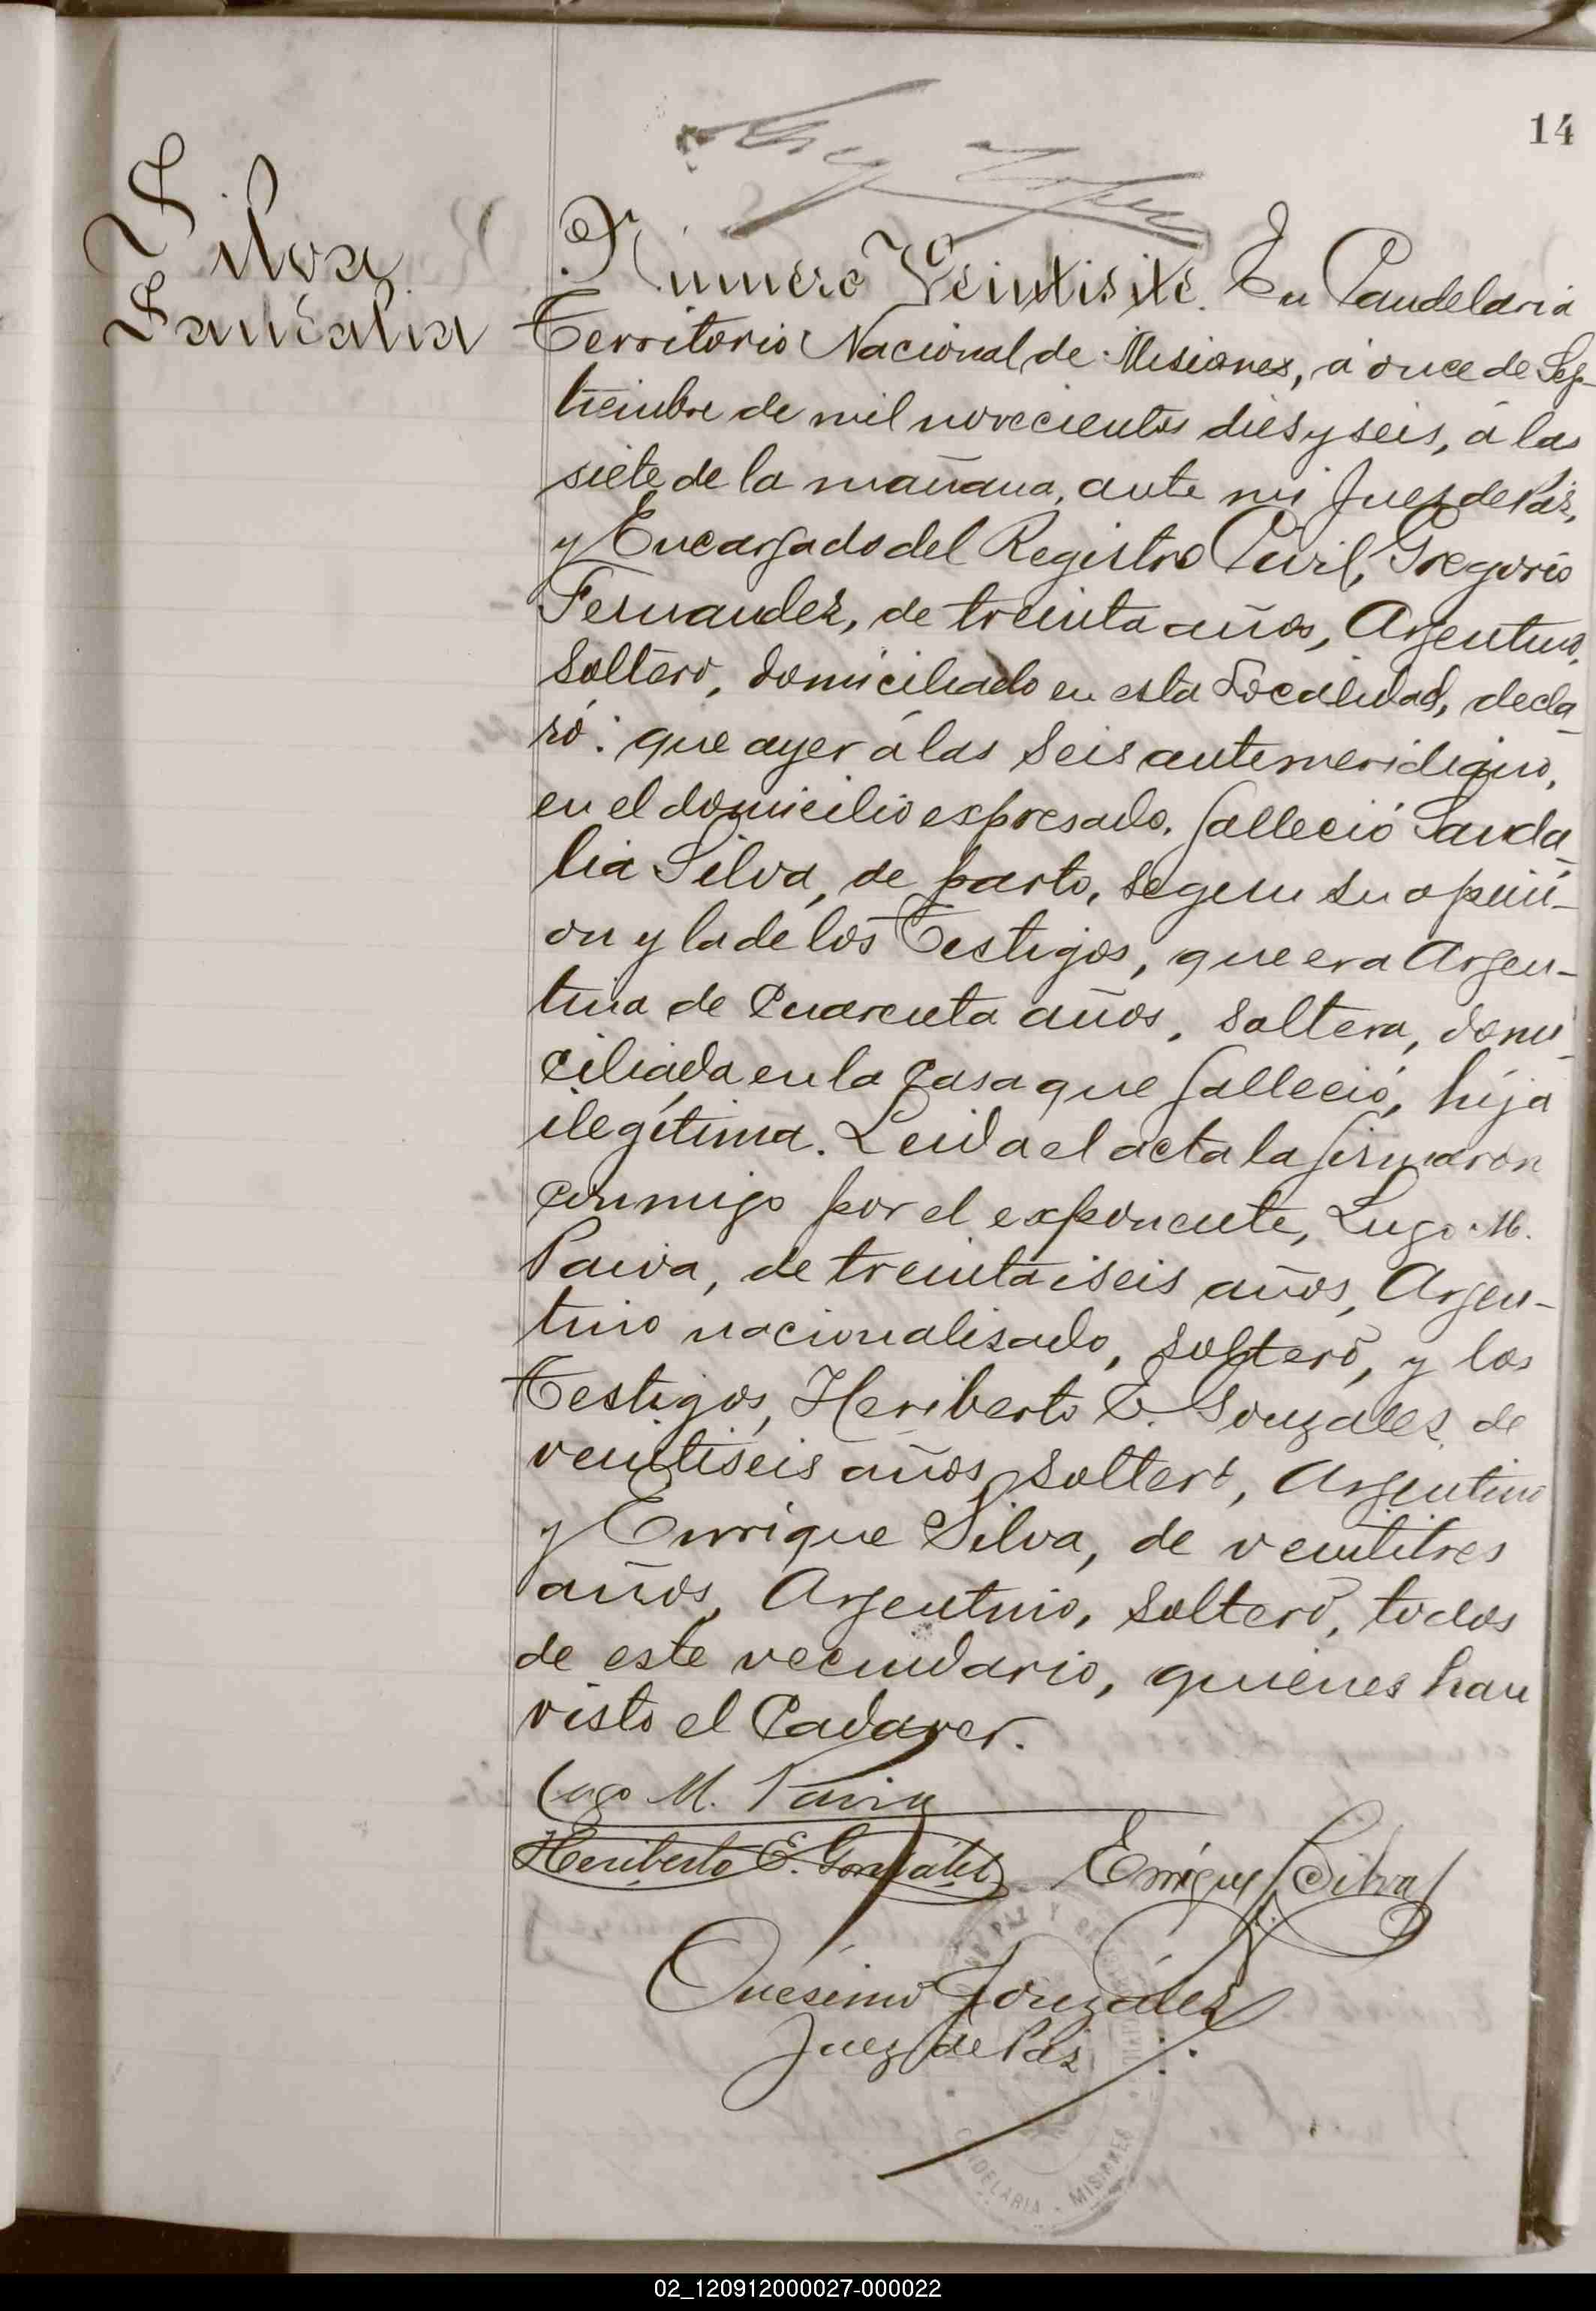 14
Silva
Sandalia
Número Veintisite. En Candelaria
Territorio Nacional de Misiones, á once de Sep-
tiembre de mil novecientos diesyseis, á las
siete de la mañana, ante mi Juez de Páz,
y Encargado del Registro Civil, Gregorio
Fernandez, de treinta años, Argentino,
Soltero, domiciliado en esta Localidad, decla-
ró: que ayer á las seis antemeridiano,
en el domicilio expresado, falleció Sanda-
lia Silva, de parto, segun su opini-
on y la de los Testigos, que era Argen-
tina de Cuarenta años, soltera, domi-
ciliada en la Casa que falleció, hija
ilegítima. Leida el acta la firmaron
conmigo por el exponente, Lugo M.
Paiva, de treintaiseis años, Argen-
tino nacionalisado, soltero, y los
Testigos, Heriberto E. Gonzales, de
veintiseis años, soltero, Argentino
y Enrique Silva, de veintitres
años, Argentino, soltero, todos
de este vecindario, quienes han
visto el Cadaver.
Lugo M. Paiva
Heriberto E. Gonzalez Enrique Silva
Onésimo González
Juez de Páz
PAZ Y
CANDELARIA - MISIONES
02_120912000027-000022